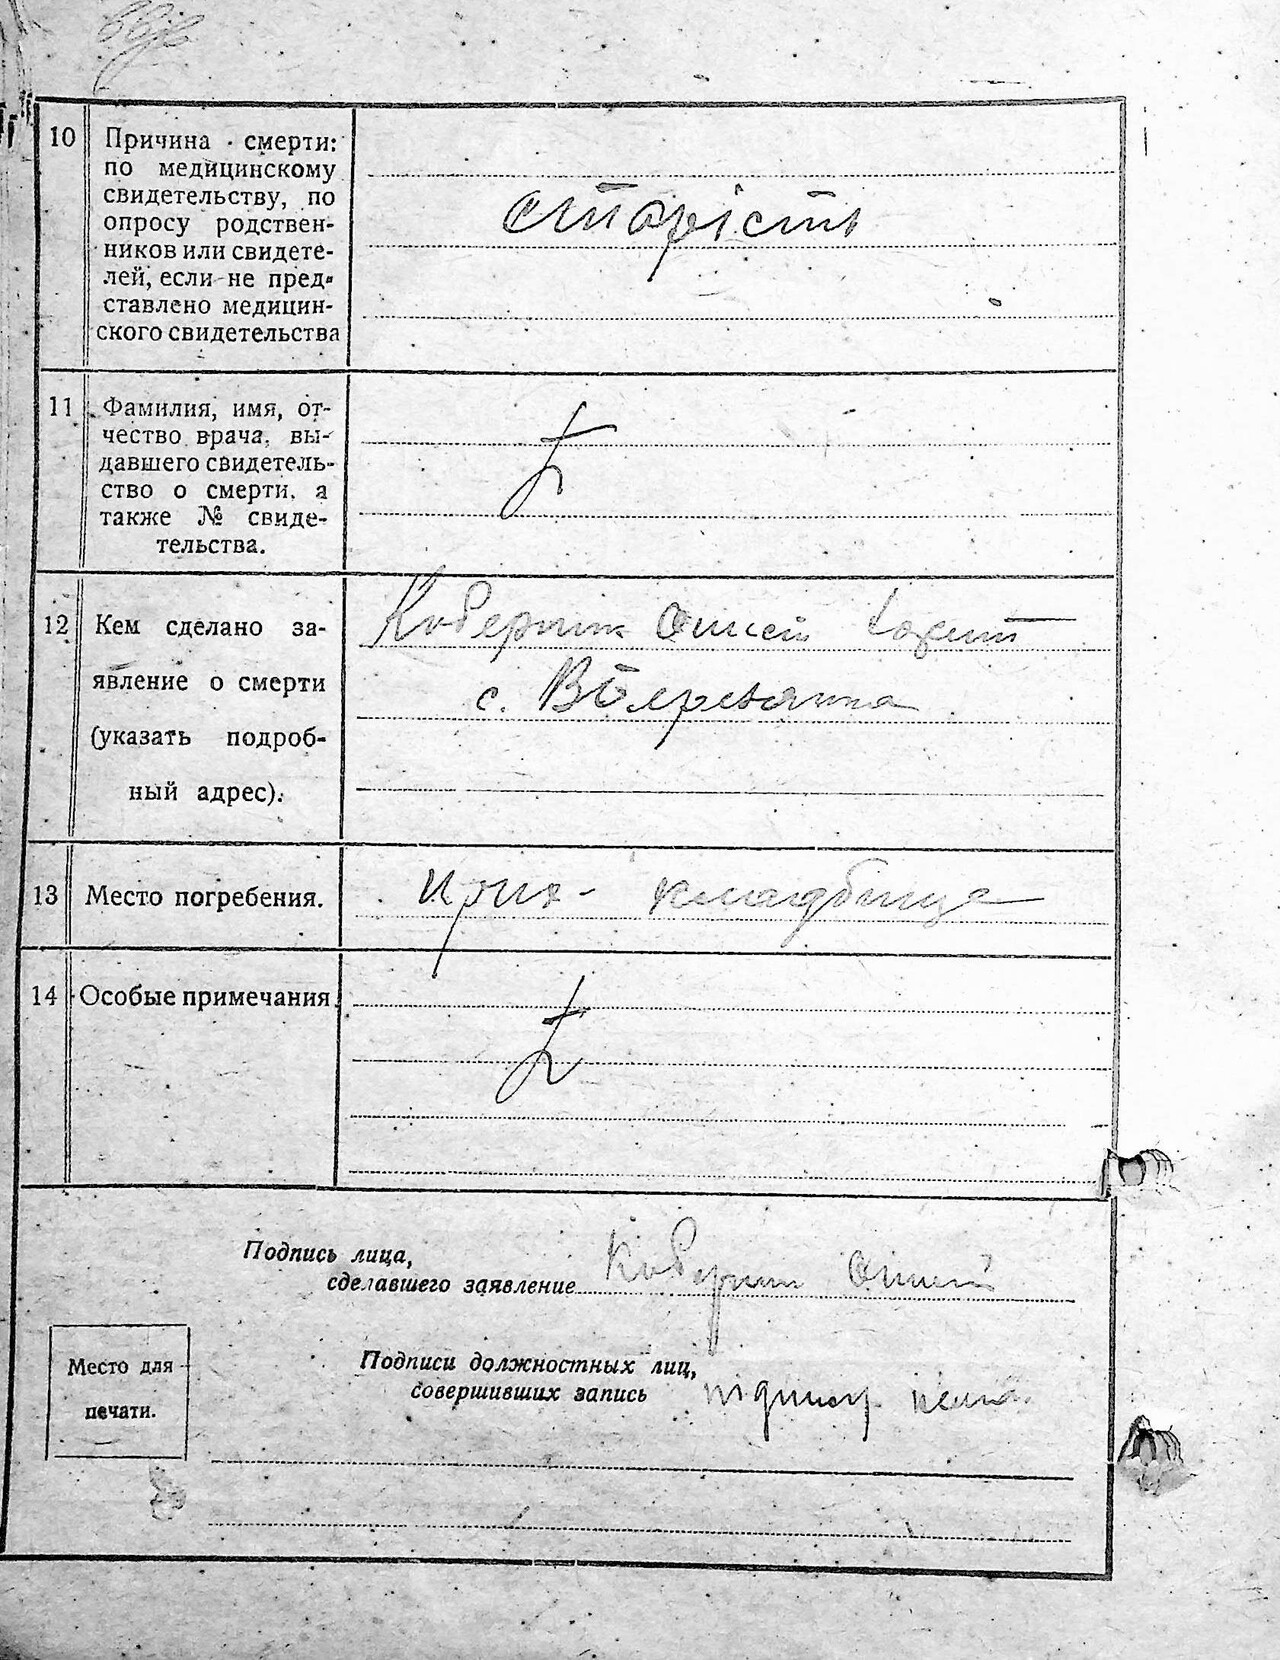 10
Причина смерти:
по медицинскому
свидетельству, по
опросу родствен-
ников или свидете-
лей, если не пред-
ставлено медицин-
ского свидетельства
старість
11
Фамилия, имя, от-
чество врача, вы-
давшего свидетель-
ство о смерти, а
также № свиде-
тельства.
12
Кем сделано за-
явление о смерти
(указать подроб-
ный адрес).
с.
13
Место погребения.
кладбище
14
Особые примечания.
Подпись лица,
сделавшего заявление
Место для
печати.
Подписи должностных лиц,
совершивших запись